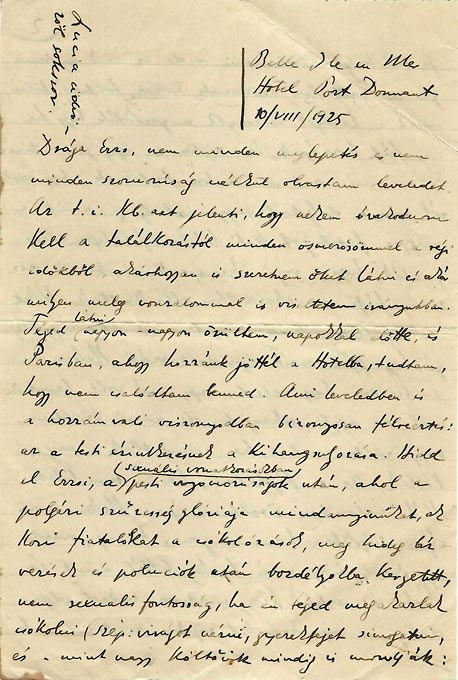 Lucia üdv-
zöl sokszor.
Belle Ile en Mer
Hotel Port Donnant
10/VIII/1925
Drága Erzsi, nem minden meglepetés és nem
minden szomorúság nélkül olvastam leveledet.
Az t. i. kb. azt jelenti, hogy nekem óvakodnom
kell a találkozástól minden ismerősömmel a régi
időkből, akárhogyan is szeretném őket látni és akár
milyen meleg vonzalommal is viseltetem irányukban.
Téged látni nagyon-nagyon örültem, napokkal előtte, és
Párisban, ahogy hozzánk jöttél a Hotelba, tudtam,
hogy nem csalódtam benned. Ami leveledben és
a hozzám való viszonyodban bizonyosan félreértés:
az a testi érintkezésnek a kihangsúlyozása. Hidd
el Erzsi, a (sexuális vonatkozásban) pesti nyomorúságok után, ahol a
polgári szüzesség glóriája mindannyiunkat, az
kori fiatalókat a csókolózások, meg hideg
és polluciók után bordélyokba kergetett,
nem sexuális fontosság, ha én téged megakarlak
csókolni (szép: virágot nézni, gyerekfejet simogatni,
és - mint nagy költőink mindig is mondják: